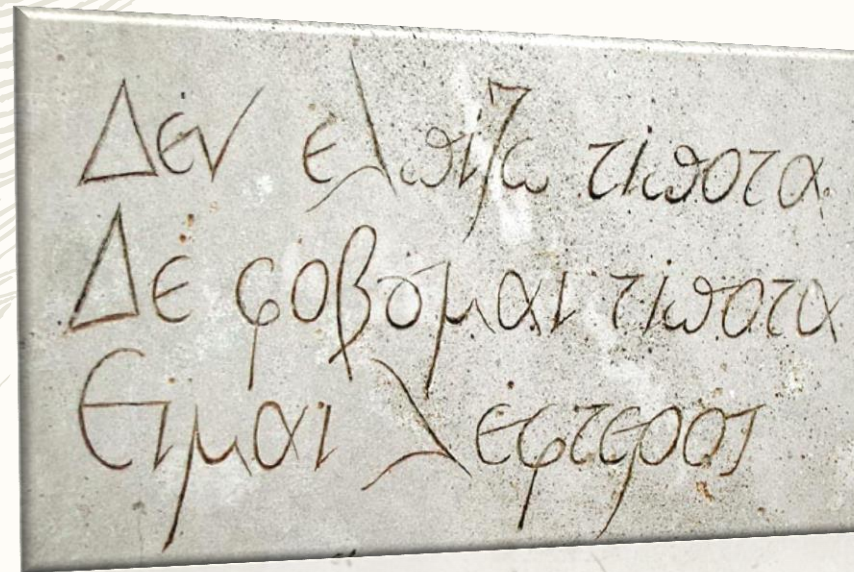 Δεν ελπίζω τίποτα
Δε φοβο̂μαι τίποτα
Είμαι λέφτερος